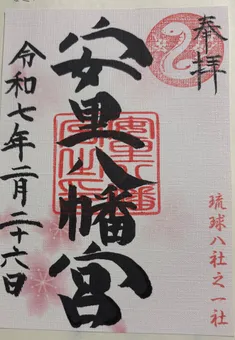 奉拝
安里八幡宮
令和七年二月二十六日
琉球八社之一社